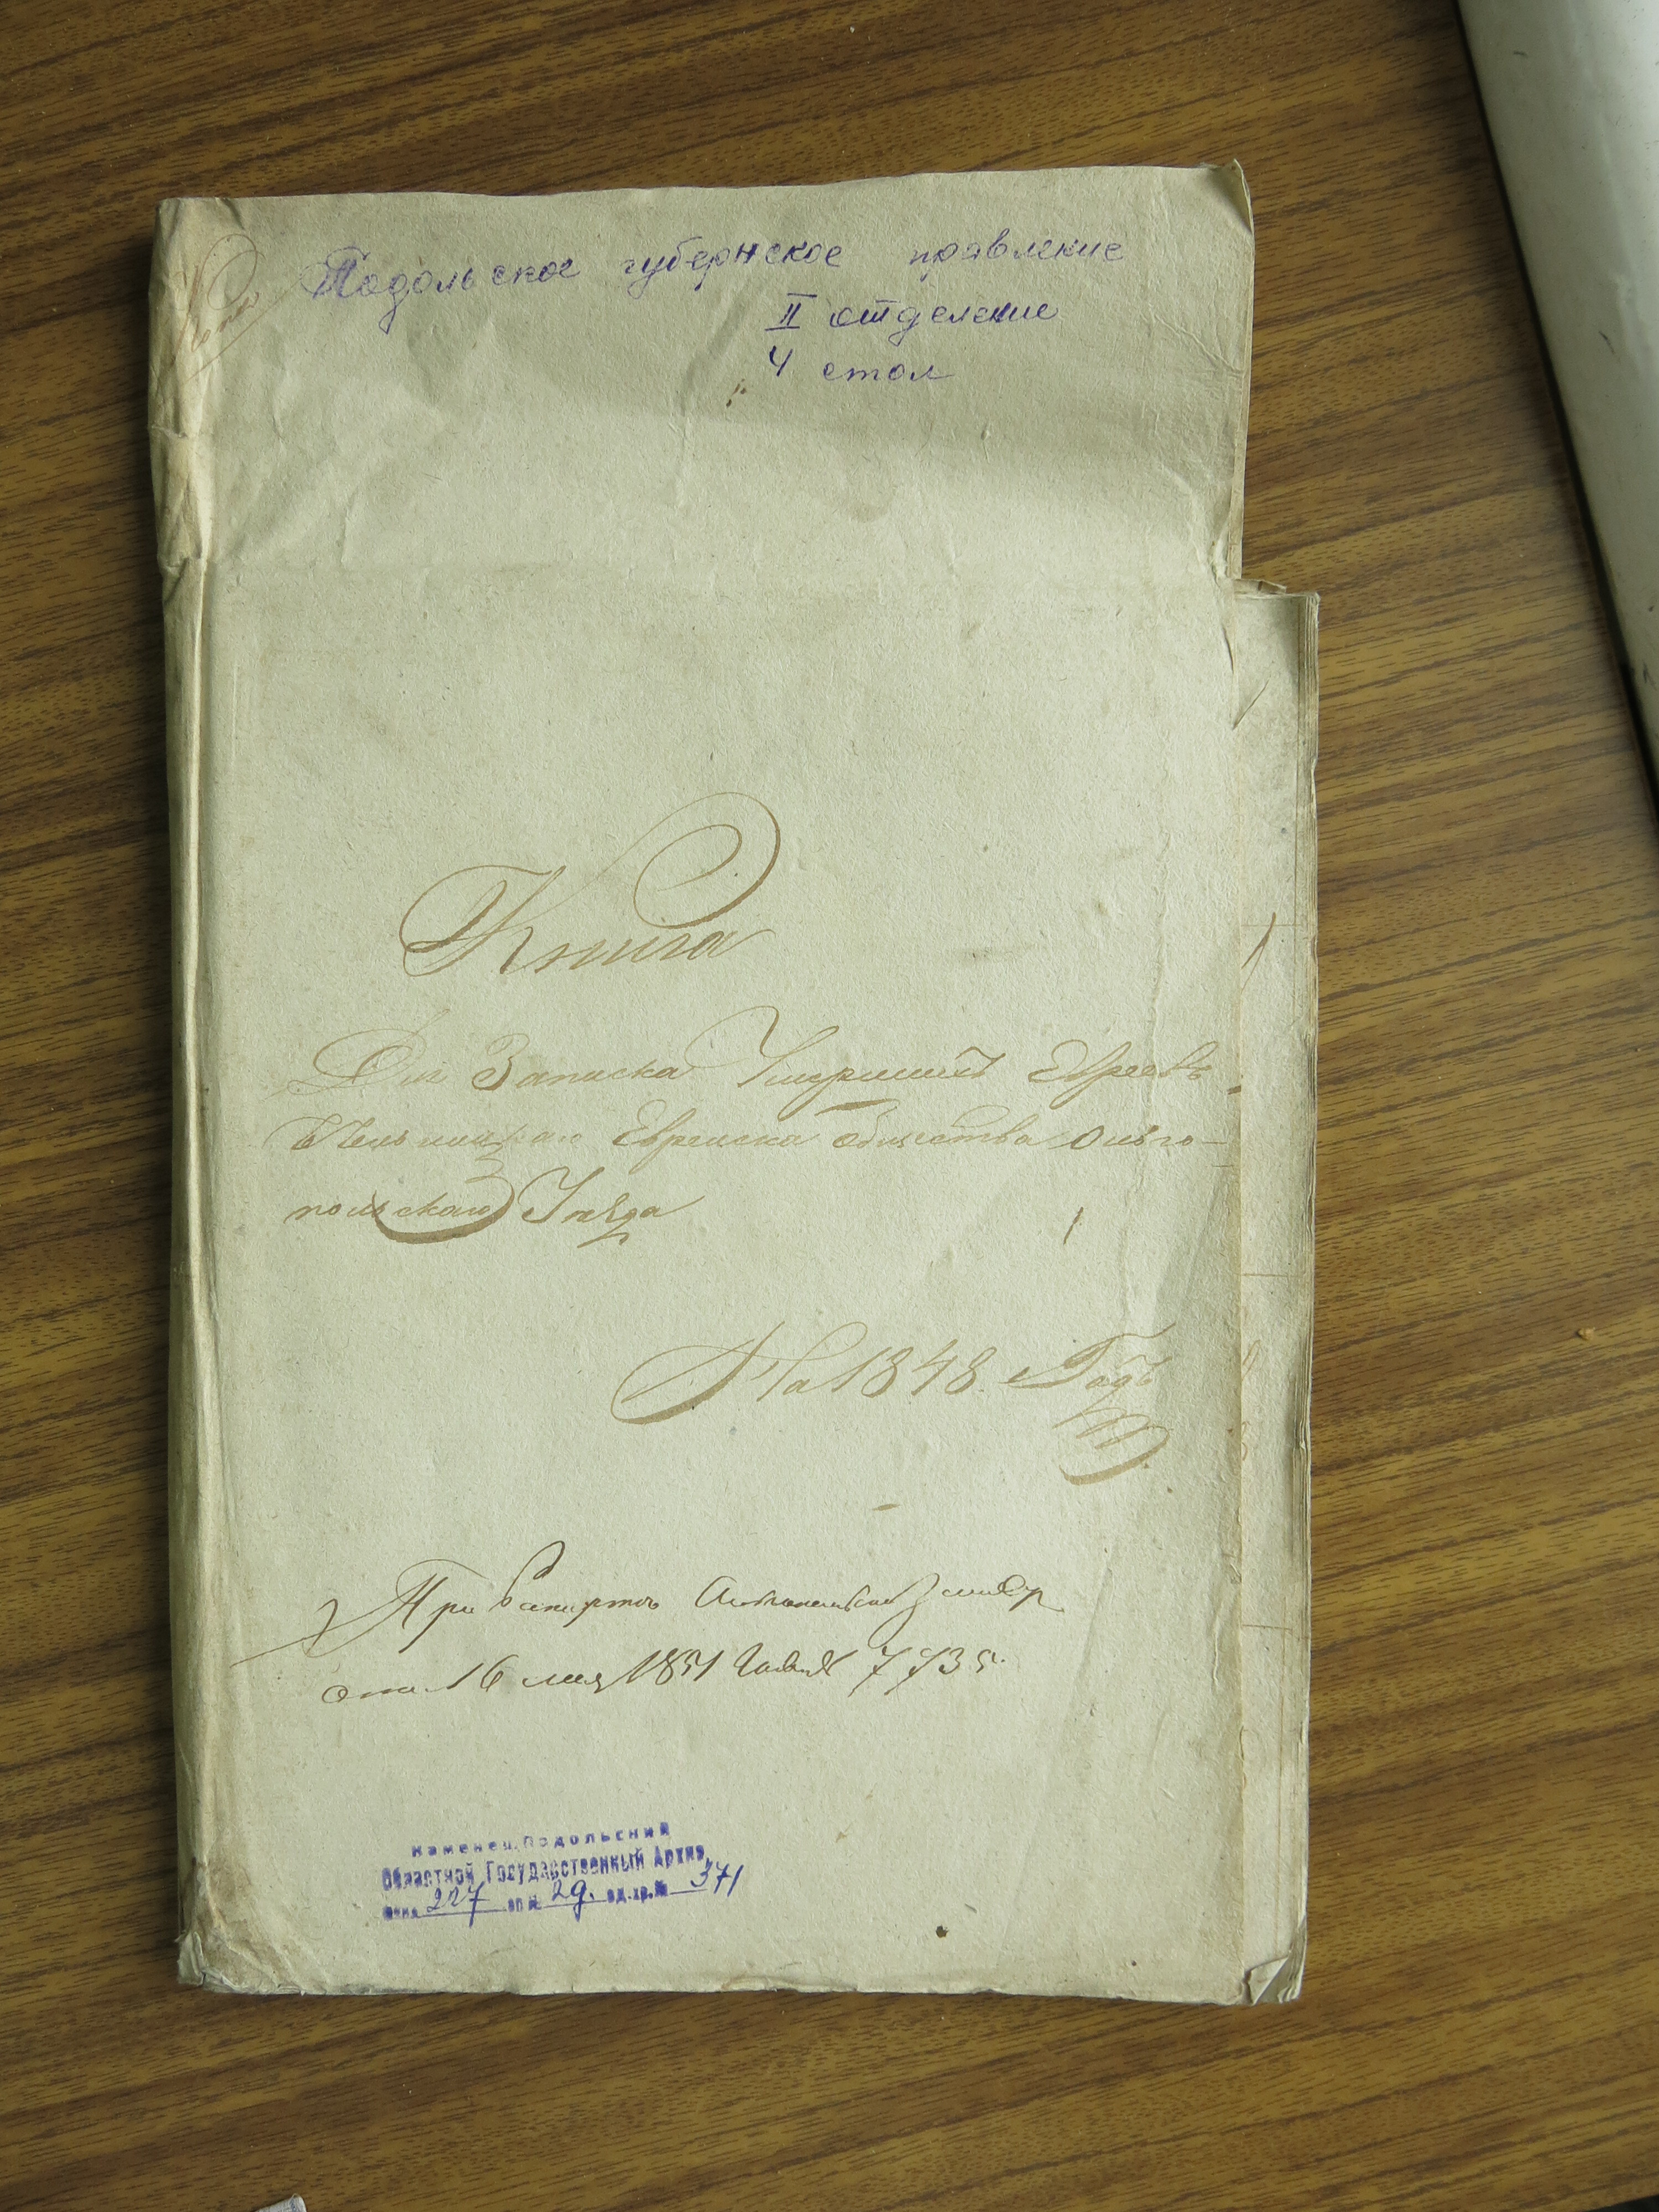 Подольское губернское правление
II отделение
4 стол
Книга
Для Записка Умершихъ Евреевъ
Евреиска общества Ольго-
польскаго Уезда
На 1848. Годъ
При Рапорте
от 16 мая 1851 7735.
Каменец-Подольский
Областной Государственный Архив
Фонд 227 оп № 29. ед.хр.№ 371